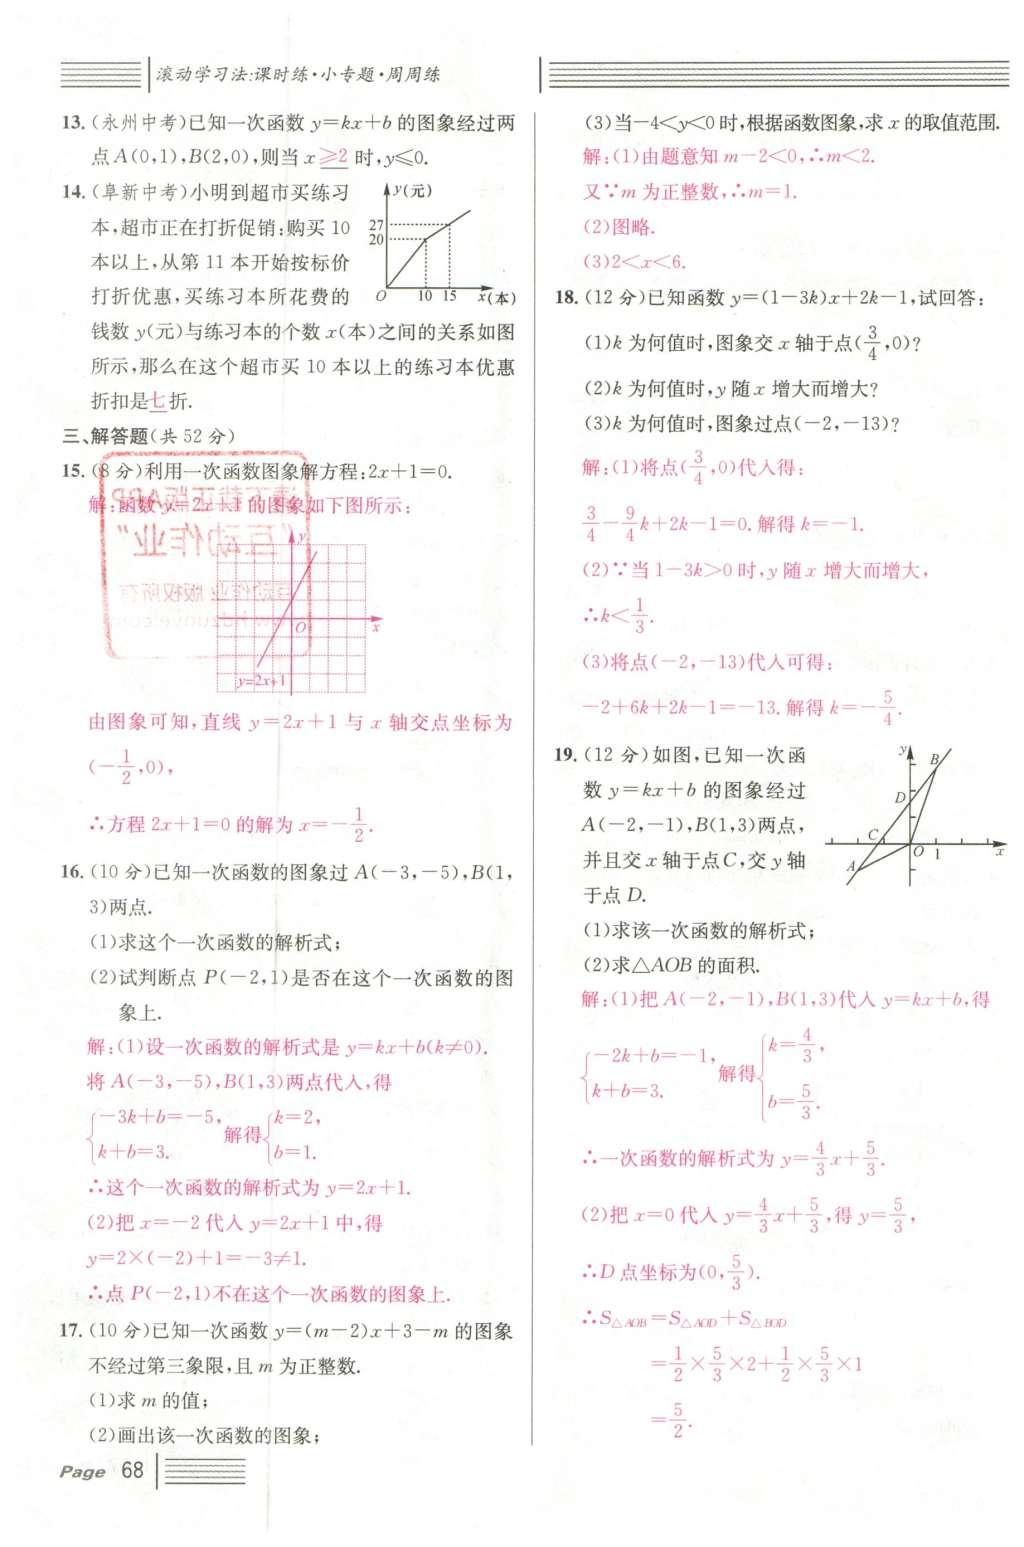 滚动学习法:课时练·小专题·周周练
13.(永州中考)已知一次函数 y=kx+b 的图象经过两
点 A(0,1),B(2,0),则当 x ≥2 时,y≤0.
14.(阜新中考)小明到超市买练习
本,超市正在打折促销:购买 10
本以上,从第 11 本开始按标价
打折优惠,买练习本所花费的
钱数 y(元)与练习本的个数 x(本)之间的关系如图
所示,那么在这个超市买 10 本以上的练习本优惠
折扣是七折.
y(元)
27
20
O 10 15 x(本)
三、解答题(共 52 分)
15.(8 分)利用一次函数图象解方程:2x+1=0.
解:函数 y=2x+1 的图象如下图所示:
y
O x
y=2x+1
由图象可知,直线 y=2x+1 与 x 轴交点坐标为
(-1/2,0),
∴方程 2x+1=0 的解为 x=-1/2.
16.(10 分)已知一次函数的图象过 A(-3,-5),B(1,
3)两点.
(1)求这个一次函数的解析式;
(2)试判断点 P(-2,1)是否在这个一次函数的图
象上.
解:(1)设一次函数的解析式是 y=kx+b(k≠0).
将 A(-3,-5),B(1,3)两点代入,得
{-3k+b=-5, k+b=3. 解得{k=2, b=1.
∴这个一次函数的解析式为 y=2x+1.
(2)把 x=-2 代入 y=2x+1 中,得
y=2×(-2)+1=-3≠1.
∴点 P(-2,1)不在这个一次函数的图象上.
17.(10 分)已知一次函数 y=(m-2)x+3-m 的图象
不经过第三象限,且 m 为正整数.
(1)求 m 的值;
(2)画出该一次函数的图象;
Page 68
(3)当-4<y<0 时,根据函数图象,求 x 的取值范围.
解:(1)由题意知 m-2<0,∴m<2.
又∵m 为正整数,∴m=1.
(2)图略.
(3)2<x<6.
18.(12 分)已知函数 y=(1-3k)x+2k-1,试回答:
(1)k 为何值时,图象交 x 轴于点(3/4,0)?
(2)k 为何值时,y 随 x 增大而增大?
(3)k 为何值时,图象过点(-2,-13)?
解:(1)将点(3/4,0)代入得:
3/4-9/4k+2k-1=0.解得 k=-1.
(2)∵当 1-3k>0 时,y 随 x 增大而增大,
∴k<1/3.
(3)将点(-2,-13)代入可得:
-2+6k+2k-1=-13.解得 k=-5/4.
19.(12 分)如图,已知一次函
数 y=kx+b 的图象经过
A(-2,-1),B(1,3)两点,
并且交 x 轴于点C,交 y 轴
于点 D.
y B
D
C O 1 x
A
(1)求该一次函数的解析式;
(2)求△AOB 的面积.
解:(1)把 A(-2,-1),B(1,3)代入 y=kx+b,得
{-2k+b=-1, k+b=3. 解得{k=4/3, b=5/3.
∴一次函数的解析式为 y=4/3x+5/3.
(2)把 x=0 代入 y=4/3x+5/3,得 y=5/3,
∴D 点坐标为(0,5/3).
∴S△AOB=S△AOD+S△BOD
=1/2×5/3×2+1/2×5/3×1
=5/2.